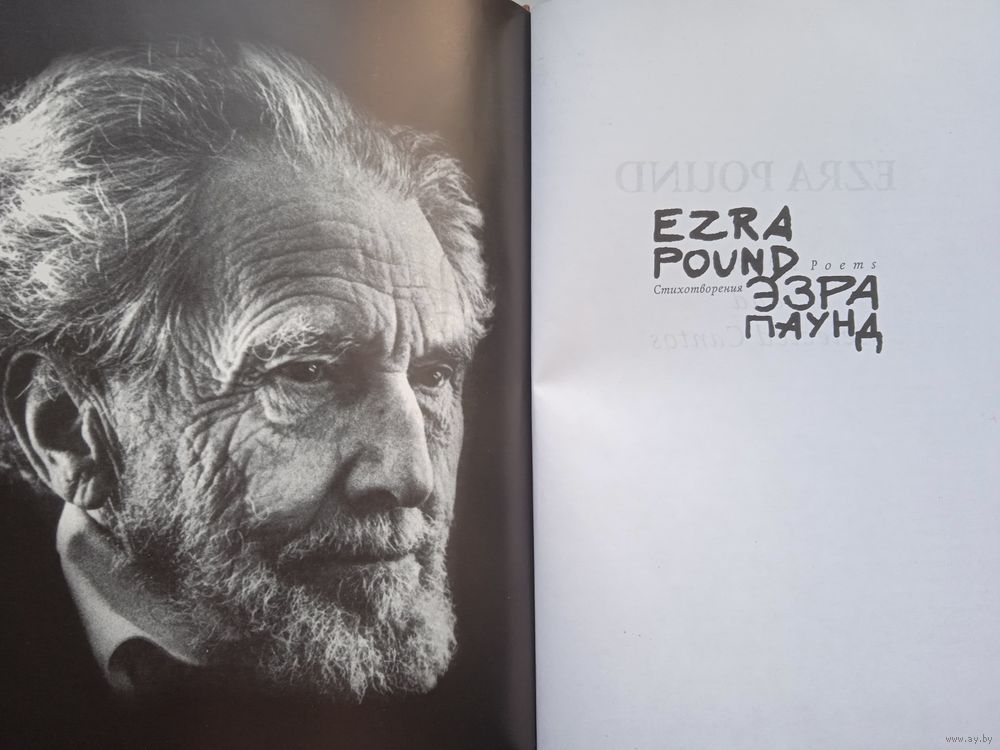 EZRA POUND
EZRA
POUND Poems
Стихотворения ЭЗРА
ПАУНД
Cantos
www.ay.by